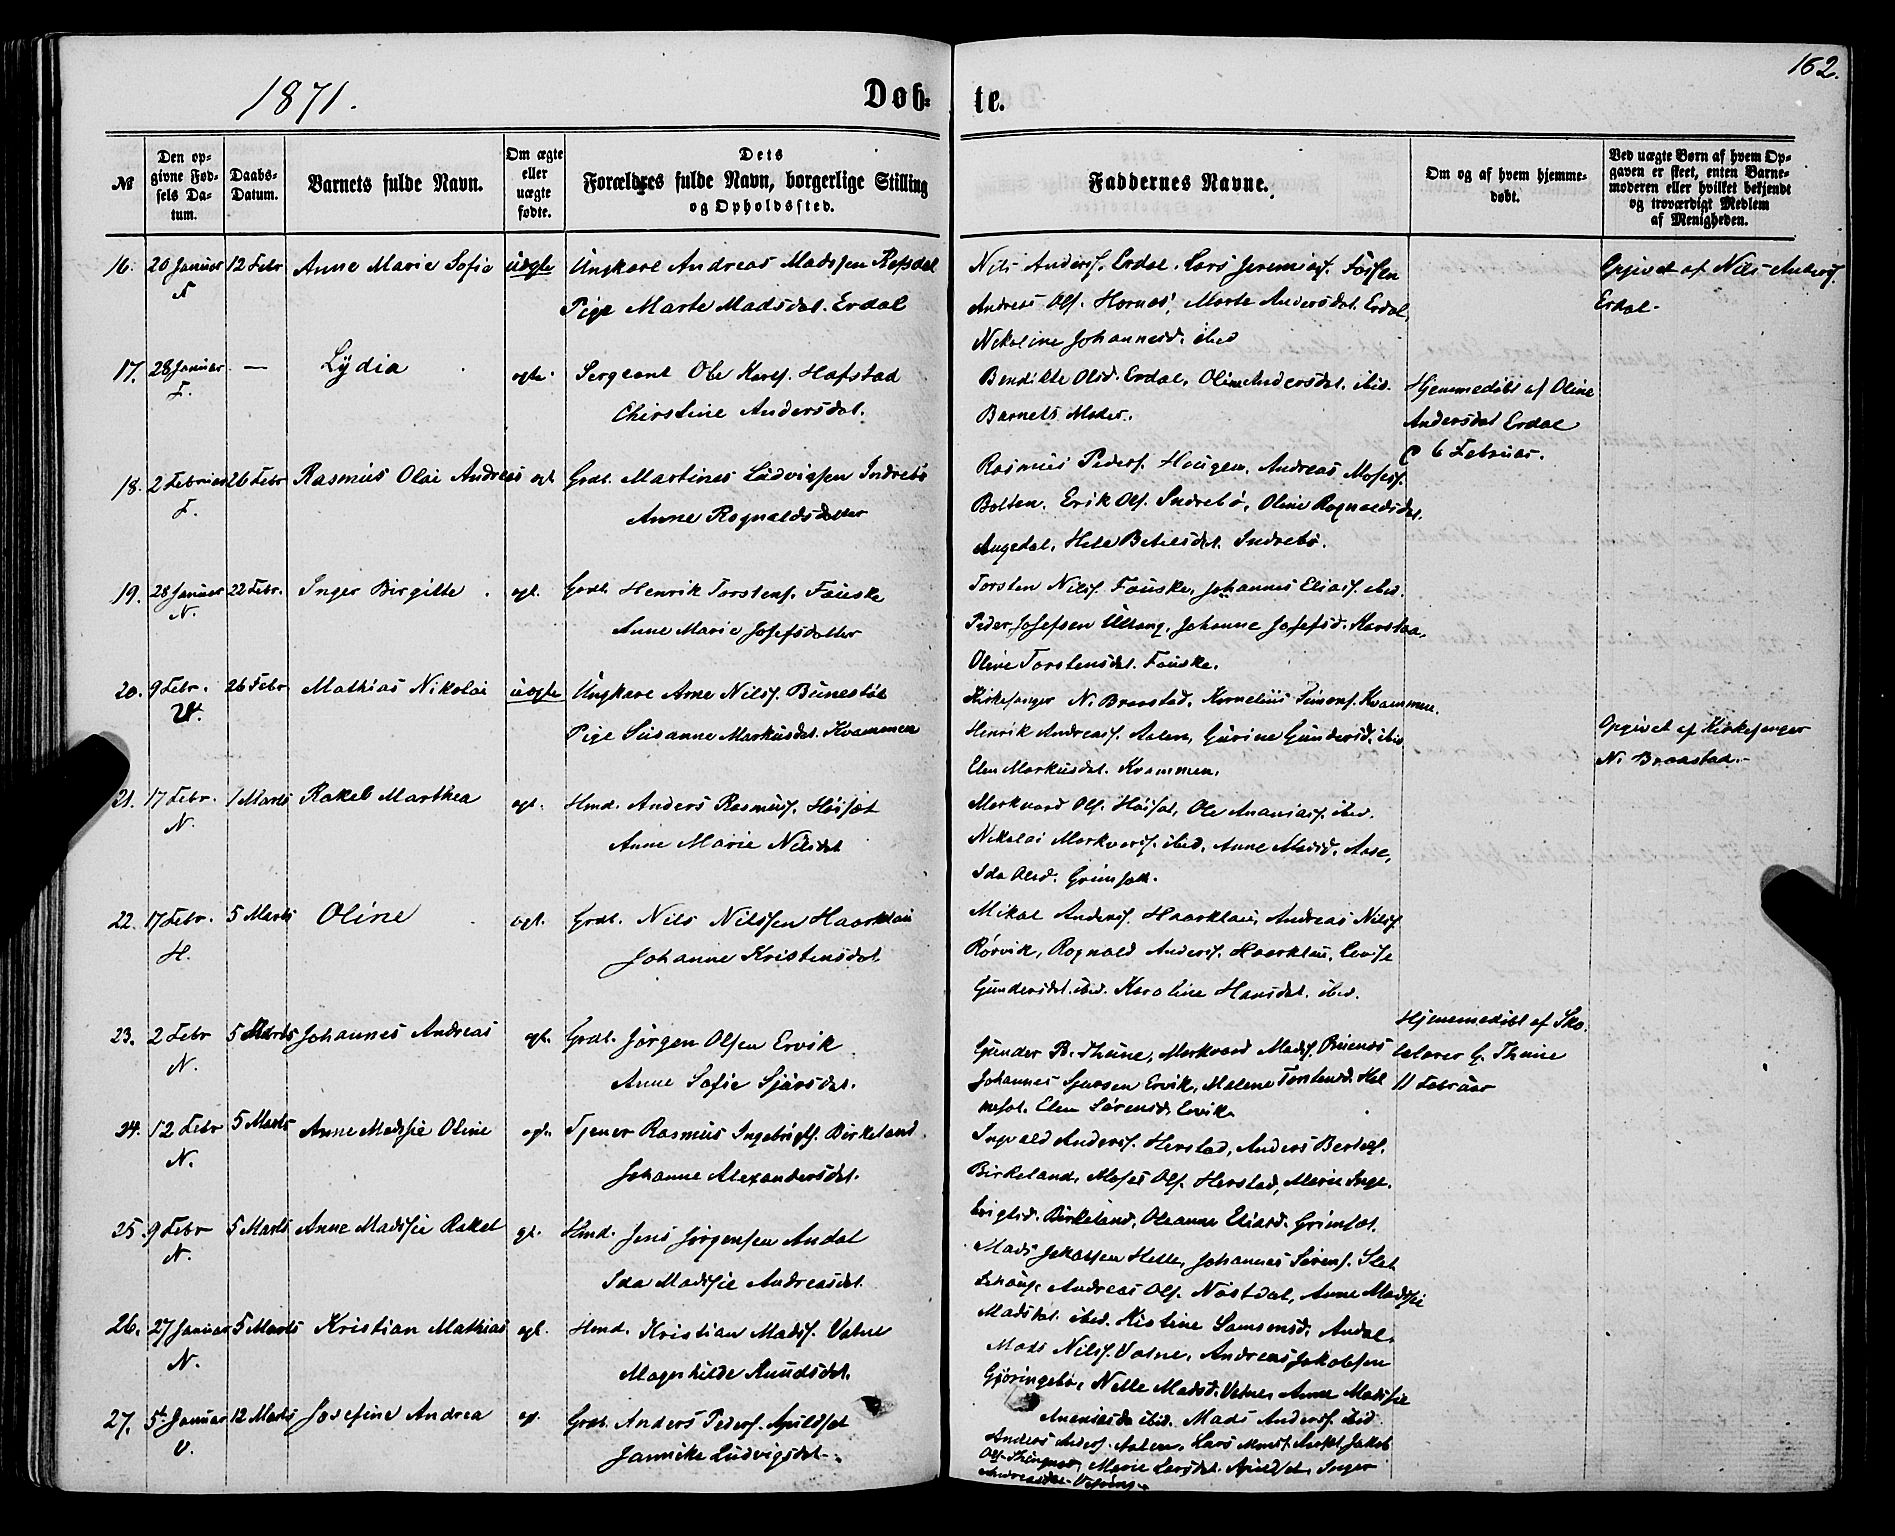 1871.
Døb-
te.
162.
№
Den op-
givne Fød-
sels Da-
tum.
Daabs-
Datum.
Barnets fulde Navn.
Om ægte
eller
uægte
fødte.
Dets
Forældres fulde Navn, borgerlige Stilling
og Opholdssted.
Faddernes Navne.
Om og af hvem hjemme-
døbt.
Ved uægte Børn af hvem Op-
gaven er skeet, enten Barne-
moderen eller hvilket bekjendt
og troværdigt Medlem
af Menigheden.
16. 20 Januar 12 Febr Anne Marie Sofie uægte Ungkarl Andreas Madssen Refsdal
N Pige Marte Madsdat. Erdal
Nils Anders. Erdal, Lars Jeremias.
Andreas Ols. Hornæs, Marte Andersdat. Erdal,
Nikoline Johannesd. ibid
Opgivet af Nils Anders.
Erdal.
17. 28 Januar — Lydia ægte Sergeant Ole Hafstad
F. Christine Andersdat.
Bendikte Olsd. Erdal, Oline Andersdat. ibid.
Barnets Moder.
Hjemmedøbt af Oline
Andersdat Erdal
6 Februar.
18. 2 Februar 26 Febr Rasmus Olai Andreas ægt Grdb. Martinus Ludvigsen Indrebø
F. Anne Rognaldsdatter
Rasmus Peders. Hougen, Andreas Moses.
Botten, Erik Ols. Indrebø, Oline Rognaldsdat.
Angedal, Betelsdt. Indrebø.
19. 28 Januar 22 Febr. Inger Birgitte ægt. Grdb. Henrik Torstens. Fauske
N. Anne Marie Josefsdatter
Torsten Nils. Fauske, Johannes Elias. ibid.
Peder Josefsen Ullang, Johanne Josefsd. Karstaa,
Oline Torstensdat. Fauske.
20. 9 Febr. 26 Febr Mathias Nikolai uægte Ungkarl Arne Nils. Bunestøl
Pige Susanne Markusdat. Kvammen
Kirkesanger N. Braastad, Kornelius Simons. Kvammen.
Henrik Andreas. Aalen, Gurine Gundersd. ibid
Elen Markusdat. Kvammen.
Opgivet af Kirkesanger
N. Braastad.
21. 17 Febr. 1 Marts Rakel Marthea ægt. Hmd. Anders Rasmus. Høiset
N. Anne Marie Nilsdat
Markvard Ols. Høiset, Ole Ananias. ibid.
Nikolai Markvards. ibid, Anne Madsd. Aase,
Ida Olsd. Grimset.
22. 17 Febr. 5 Marts Oline ægt. Grdb. Nils Nilssen Haarklau
H. Johanne Kristensdat
Mikal Anders. Haarklau, Andreas Nils.
Rørvik, Rognald Anders. Haarklau, Lovise
Gundersdat. ibid. Karoline Hansdat. ibid.
23. 2 Febr 5 Marts Johannes Andreas ægt. Grdb. Jørgen Olsen Ervik
N. Anne Sofie Sjursdat.
Gunder B. Thune, Markvard Mads.
Johannes Sjursen Ervik, Malene Torstensd. Hel
meset. Elen Sørensd. Ervik
Hjemmedøbt af Sko-
lelærer G. Thune
11 Februar
24. 12 Febr 5 Marts Anne Madsie Oline ægt. Tjener Rasmus Ingebrigts. Birkeland
N. Johanne Alexandersdat.
Ingvald Anders. Herstad, Anders Bertels.
Birkeland, Moses Ols. Herstad, Marie Inge-
brigtsd. Birkeland, Oleanne Eliasd. Grimset.
25. 9 Febr 5 Marts Anne Madsie Rakel ægt. Hmd. Jens Jørgensen Andal
N. Ida Madsie Andreasdat
Mads Jakobsen Helle, Johannes Sørens.
Andreas Ols. Nøstdal, Anne Madsie
Madsdat. ibid. Kistine Samsonsd. Andal.
26. 27 Januar 5 Marts Kristian Mathias ægt. Hmd. Kristian Mads. Vatne
N. Magnhilde Knudsdat.
Mads Nils. Vatne, Andreas Jakobsen
Gjøringebø, Nelle Madsd. Vatne, Anne Madsie
Ananiasda ibid. Mads Anders. ibid
27. 5t Januar 12 Marts Josefine Andrea ægt. Grdb. Anders Peders. Apaldset
V. Jannike Ludvigsdat.
Anders Peders. Aalen, Lars Jakob
Ols. Marie Larsdat. Apaldset, Inger
Andreasdat.